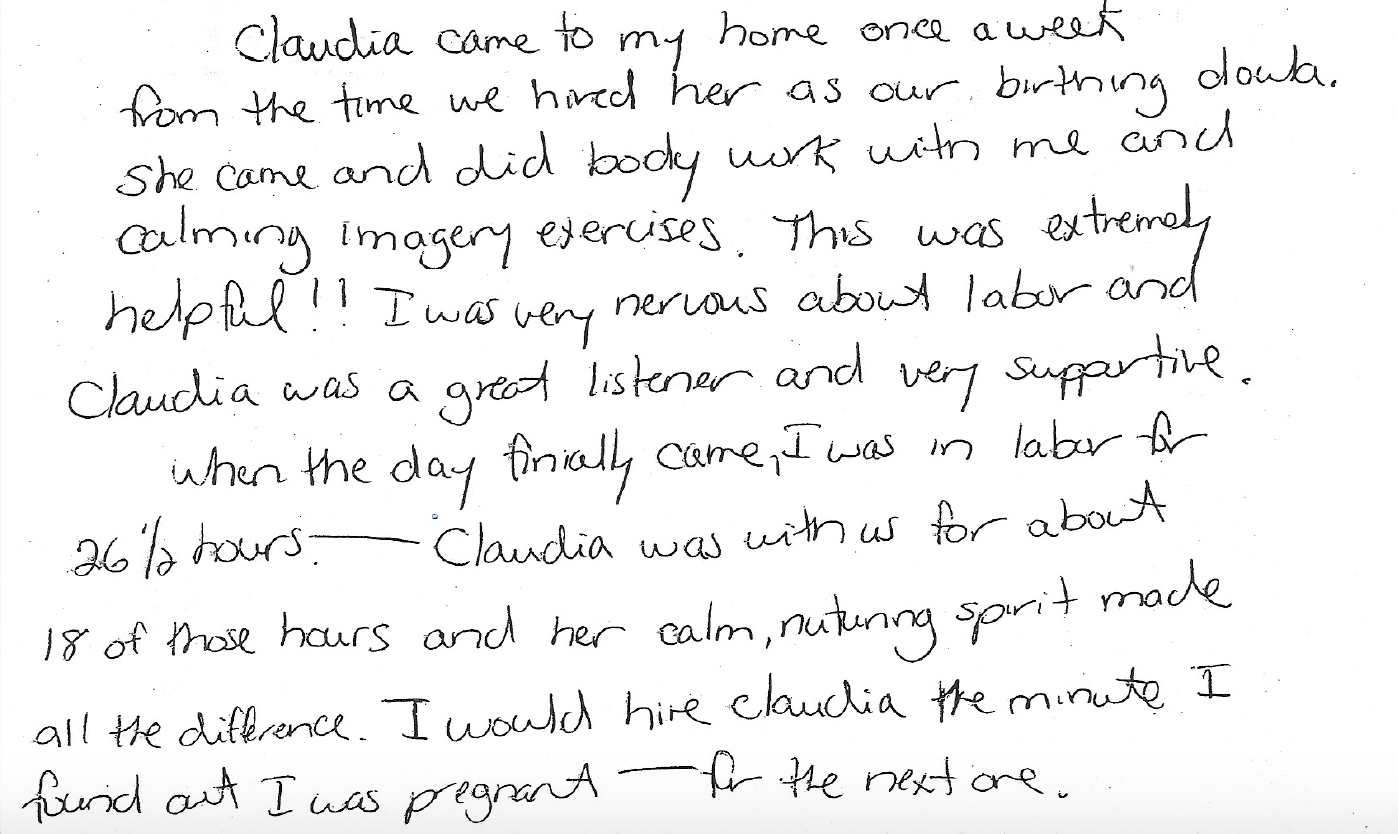 Claudia came to my home once a week
from the time we hired her as our birthing doula.
She came and did body work with me and
calming imagery exercises. This was extremely
helpful!! I was very nervous about labor and
Claudia was a great listener and very supportive.
When the day finially came, I was in labor for
26 1/2 hours. — Claudia was with us for about
18 of those hours and her calm, nuturing spirit made
all the difference. I would hire Claudia the minute I
found out I was pregnant — for the next one.